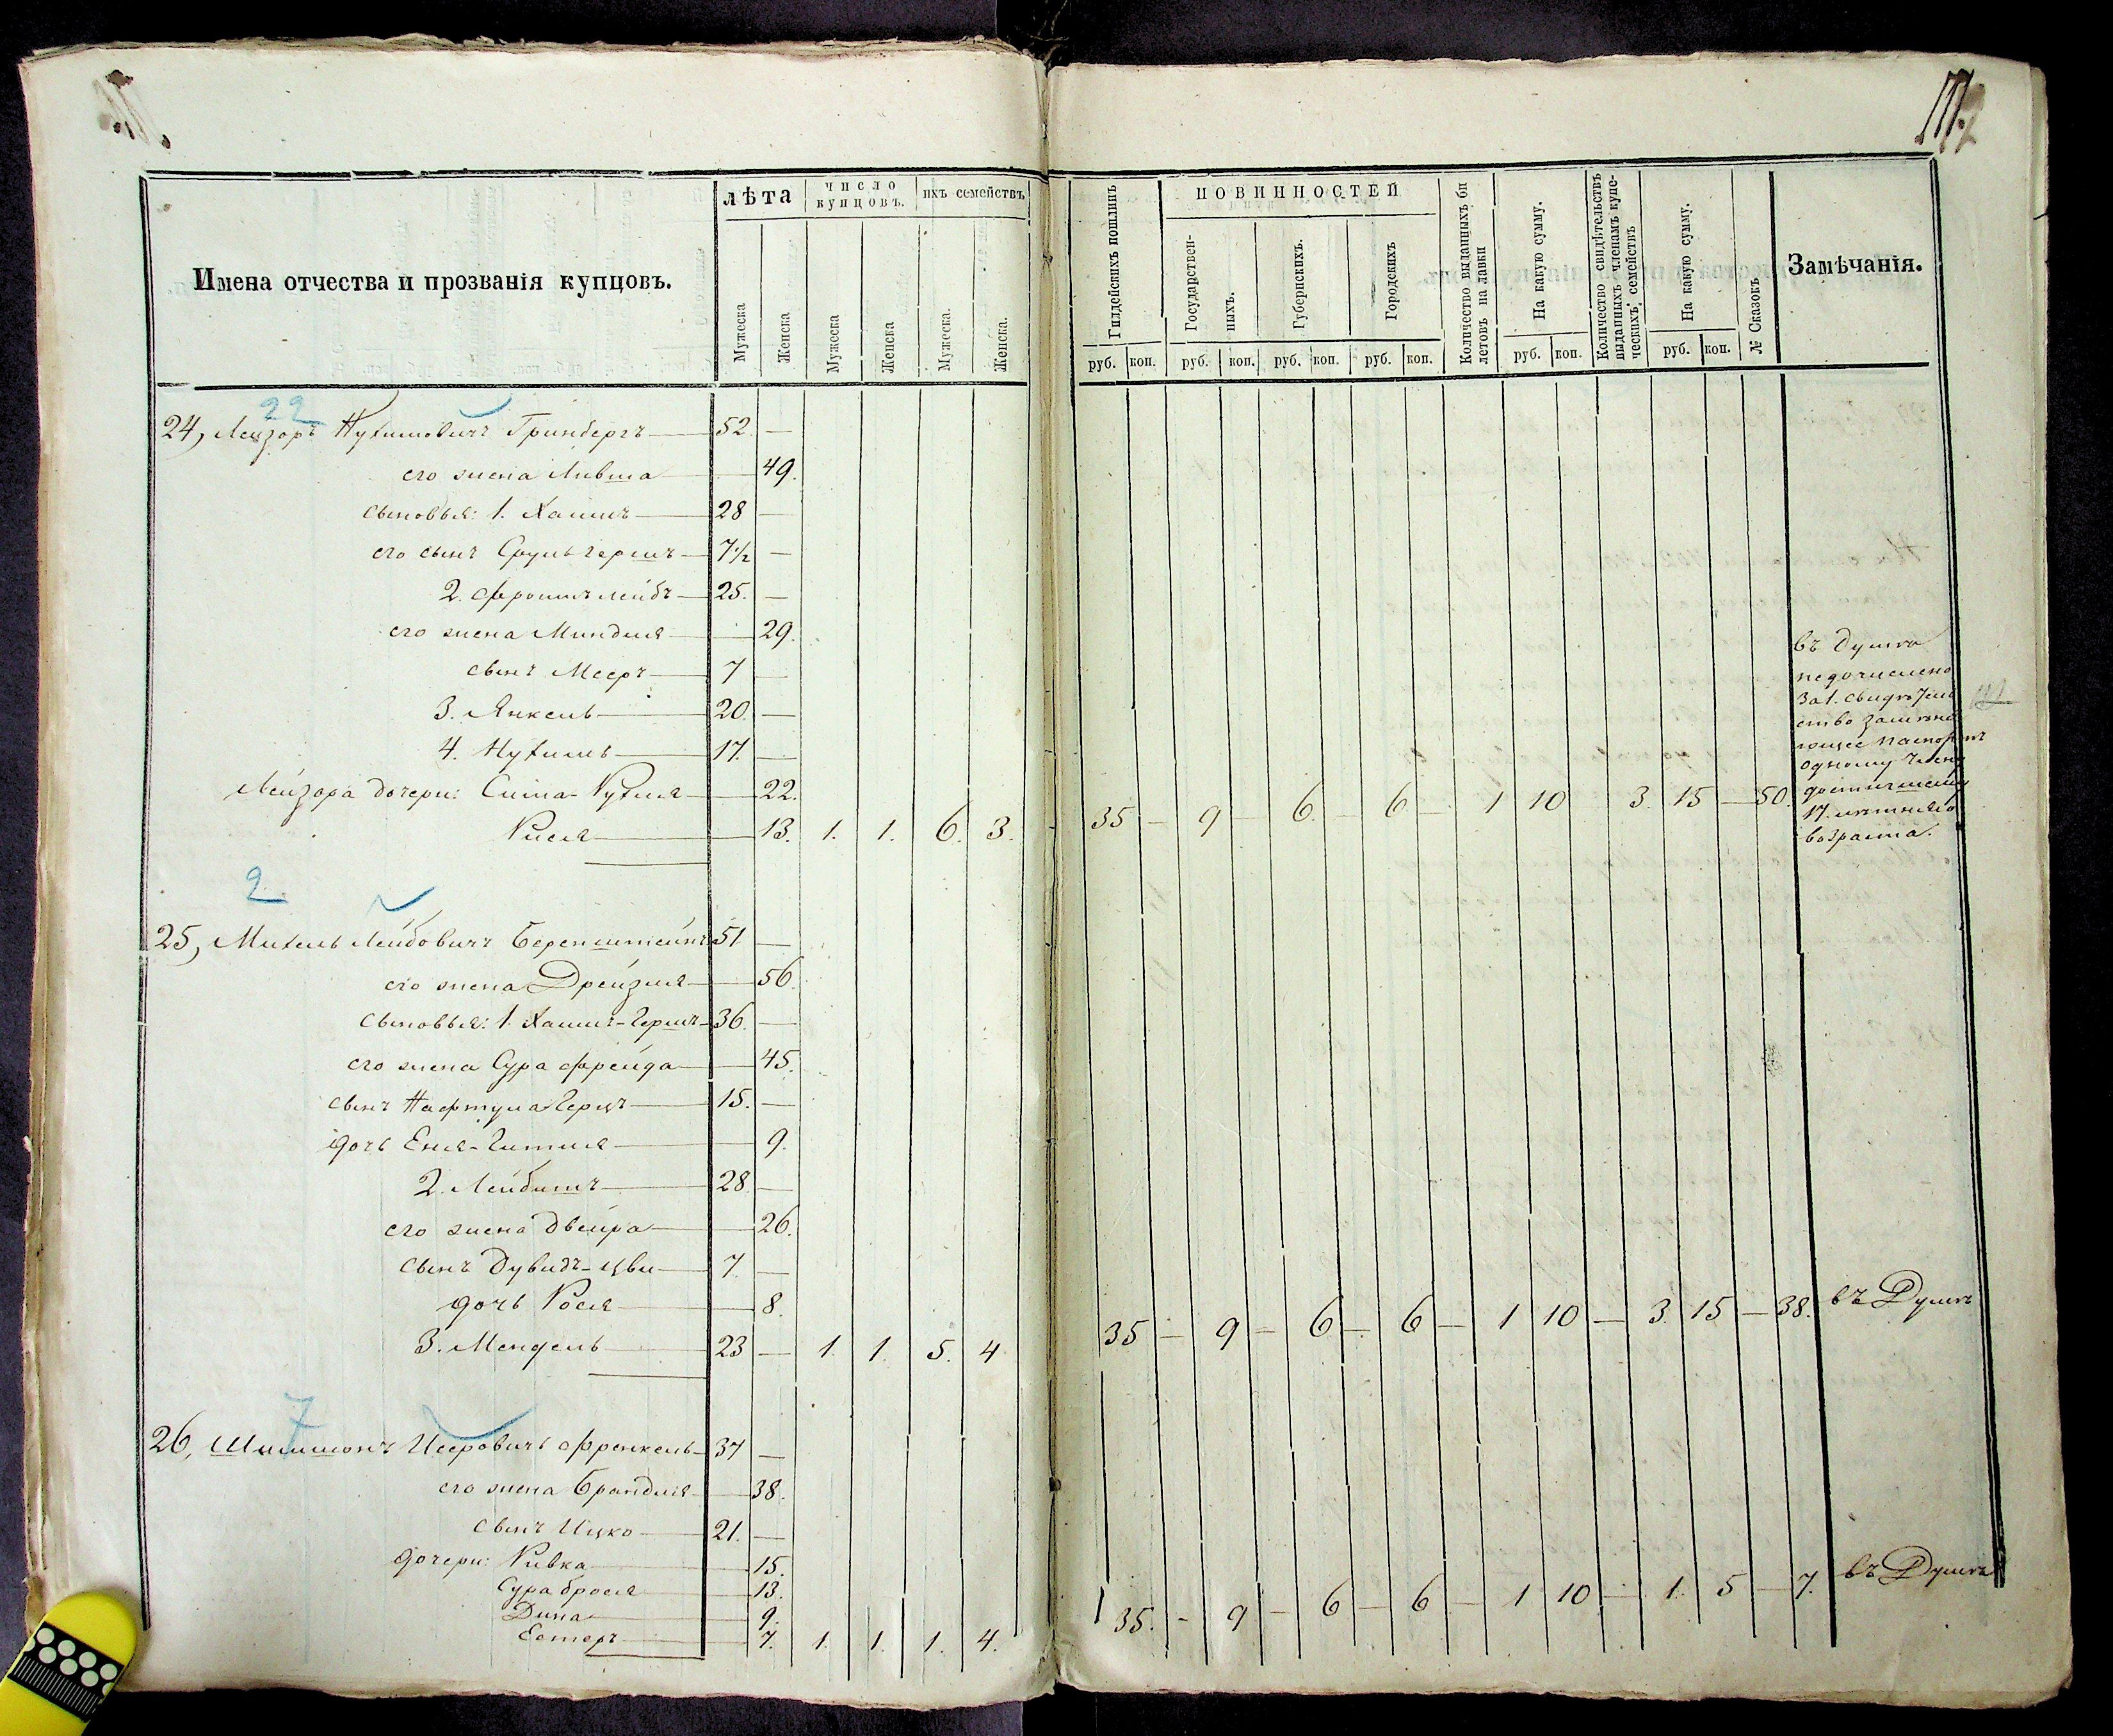 Имена отчества и прозванія купцовъ.
лѣта
число купцовъ.
ихъ семействъ
Мужеска
Женска
Мужеска
Женска
Мужеска.
Женска.
22
24, Лейзоръ Нухимовичъ Гринбергъ 52 —
его жена Ливша — 49.
сыновья: 1. Хаимъ 28 —
его сынъ Сруль Гершъ 7 1/2 —
2. Фроимъ Лейбъ 25. —
его жена Миндля — 29.
сынъ Мееръ 7 —
3. Янкель 20. —
4. Нухимъ 17. —
Лейзора дочери: Сима-Рухля — 22.
Рися — 13. 1. 1. 6. 3.
2
25, Михель Лейбовичъ Беренштейнъ 51 —
его жена Дрейзля — 56.
сыновья: 1. Хаимъ-Гершъ 36. —
его жена Сура Фрейда — 45.
сынъ Нафтула Герцъ 15. —
дочь Еня-Гитля — 9.
2. Лейбишъ 28 —
его жена Двейра — 26.
сынъ Дувидъ-Цви 7. —
дочь Рося — 8.
3. Мендель 23 — 1. 1. 5. 4
7
26, Шимшонъ Исеровичъ Френкель 37 —
его жена Брандля — 38.
сынъ Ицко 21. —
дочери: Ривка — 15.
Сура Брося — 13.
Дина — 9.
Естеръ — 7. 1. 1. 1. 4.
Гилдейскихъ пошлинъ
ПОВИННОСТЕЙ
Государствен-
ныхъ.
Губернскихъ.
Городскихъ
Количество выданныхъ би
летовъ на лавки
На какую сумму.
Количество свидѣтельствъ
выданныхъ членамъ купе-
ческихъ семействъ
На какую сумму.
№ Сказокъ.
Замѣчанія.
руб. коп. руб. коп. руб. коп. руб. коп. руб. коп. руб. коп.
35 — 9 — 6. — 6 — 1 10 3. 15 — 50.
въ Думѣ
недочислено
за 1. свидѣтель
ство замѣня
ющее паспортъ
одному члену
достигшему
17. лѣтняго
возраста.
35 — 9 — 6 — 6 — 1 10 — 3. 15 — 38. въ Думѣ
35. — 9 — 6 — 6 — 1 10 — 1. 5 — 7. въ Думѣ